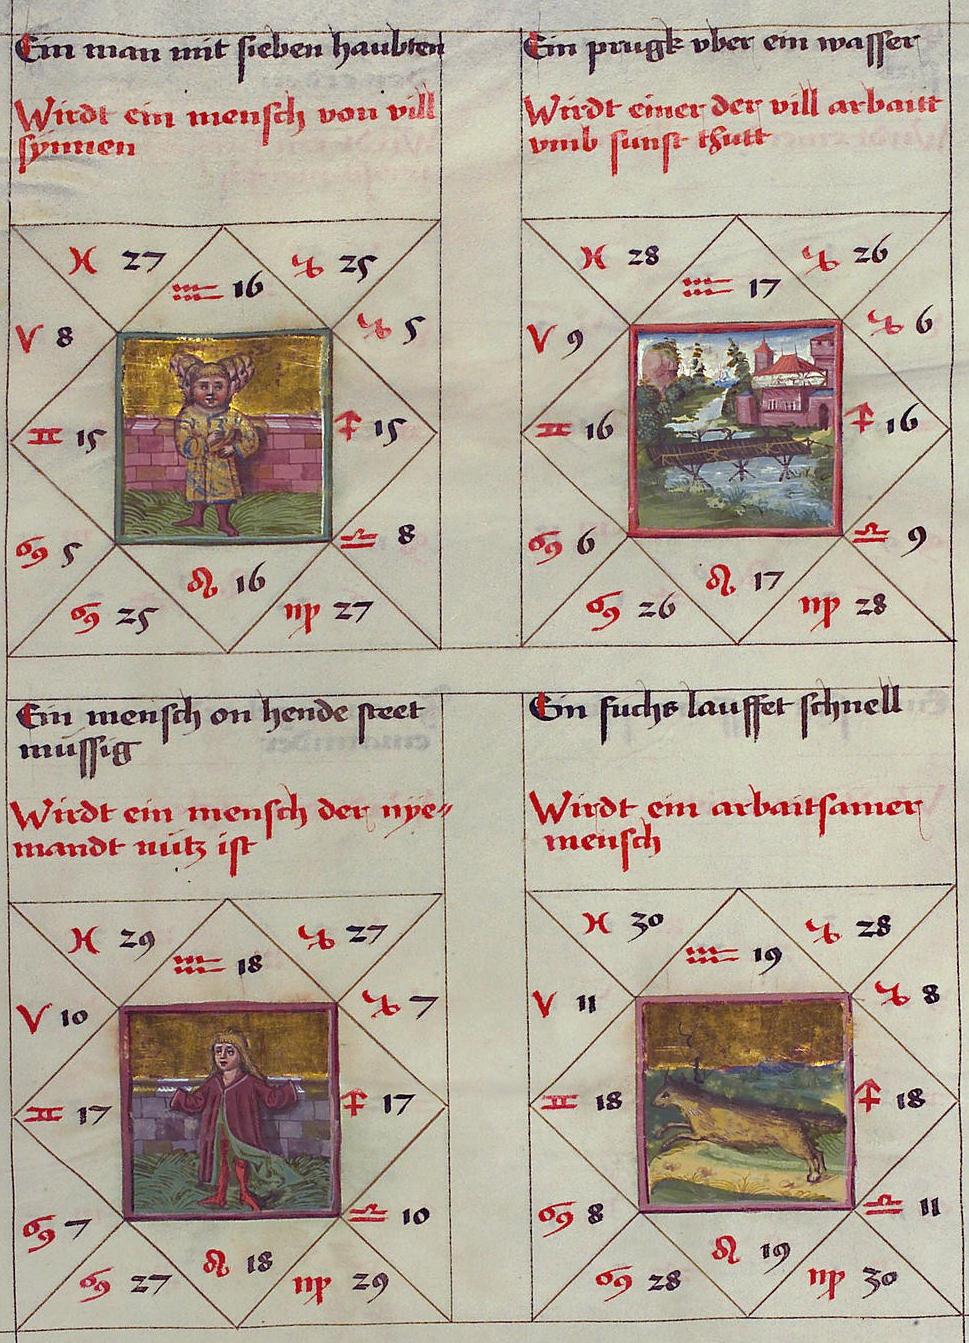 Ein man mit sieben haubten
Wirdt ein mensch von vill
synnen
♓ 27
♑ 25
♒ 16
♈ 8
♑ 5
♊ 15
♐ 15
♋ 5
♎ 8
♌ 16
♋ 25
♍ 27
Ein prugk vber ein wasser
Wirdt einer der vill arbaitt
vmb sunst thutt
♓ 28
♑ 26
♒ 17
♈ 9
♑ 6
♊ 16
♐ 16
♋ 6
♎ 9
♌ 17
♋ 26
♍ 28
Ein mensch on hende steet
müssig
Wirdt ein mensch der nye⸗
mandt nütz ist
♓ 29
♑ 27
♒ 18
♈ 10
♑ 7
♊ 17
♐ 17
♋ 7
♎ 10
♌ 18
♋ 27
♍ 29
Ein fuchs lauffet schnell
Wirdt ein arbaitsamer
mensch
♓ 30
♑ 28
♒ 19
♈ 11
♑ 8
♊ 18
♐ 18
♋ 8
♎ 11
♌ 19
♋ 28
♍ 30